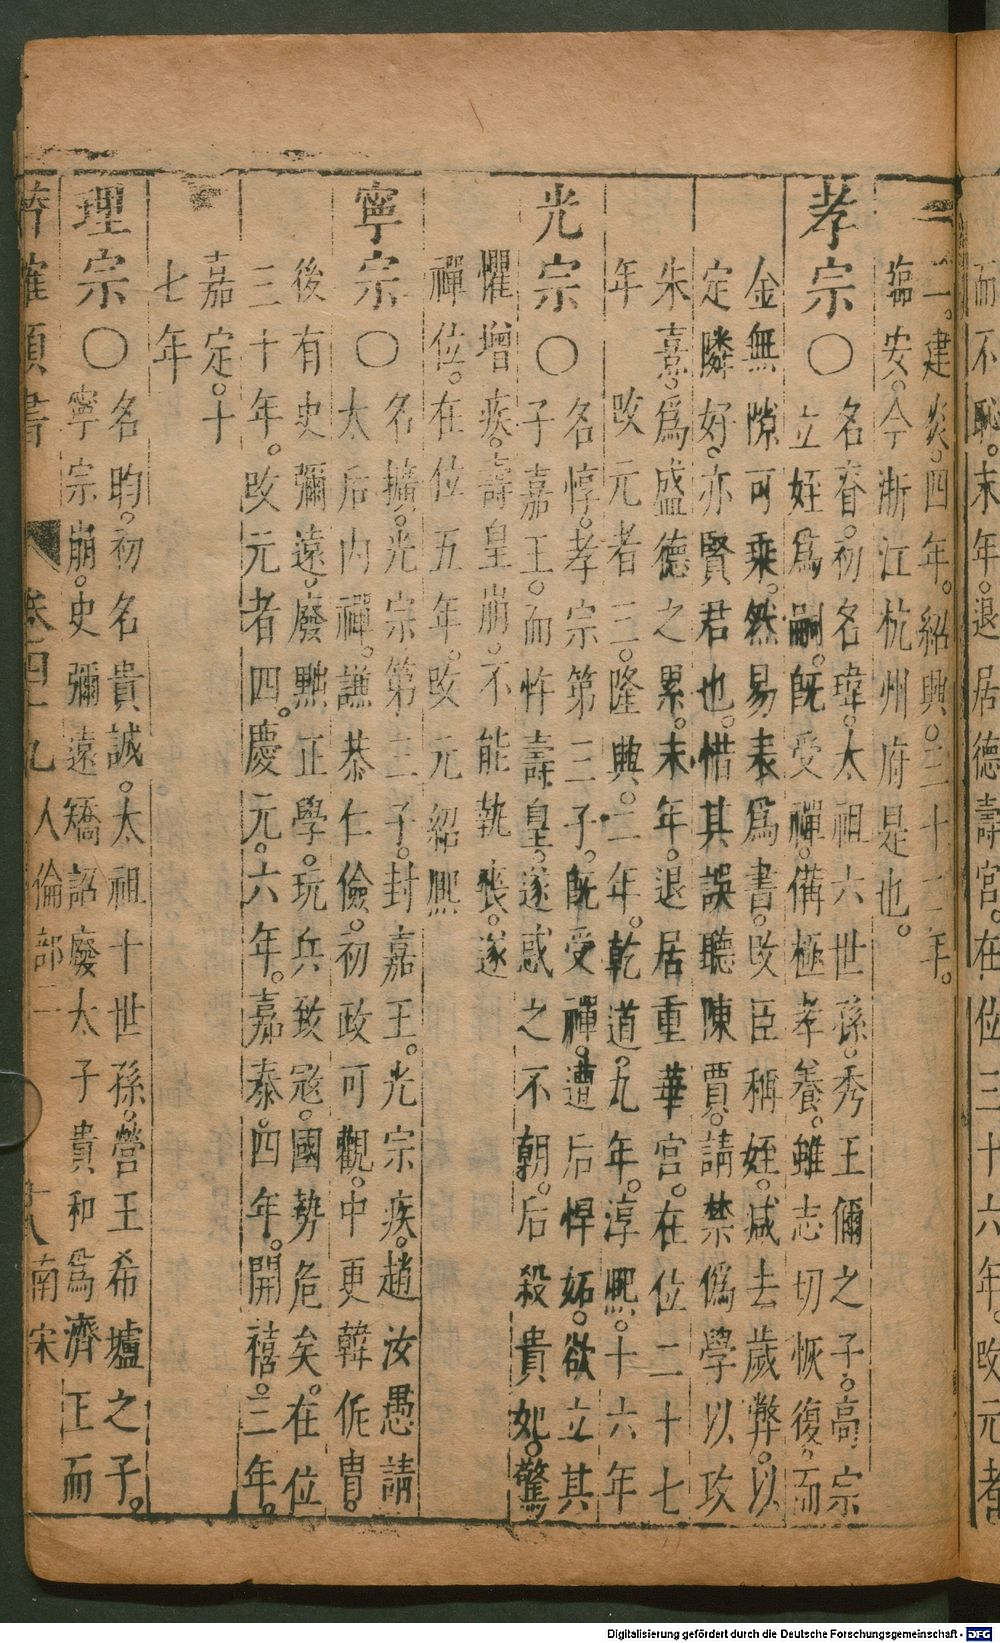 而不恥。末年。退居德壽宮。在位三十六年。改元者
二。建炎。四年。紹興。三十二年。
臨安。今浙江杭州府是也。
孝宗〇名眘。初名瑋。太祖六世孫。秀王偁之子。高宗
立姪爲嗣。旣受禪。備極孝養。雖志切恢復。而
金無隙可乘。然易表爲書。改臣稱姪。减去歲弊。以
定隣好。亦賢君也。惜其誤聽陳賈。請禁僞學以攻
朱熹。爲盛德之累。末年。退居重華宮。在位二十七
年 改元者三。隆興。二年。乾道。九年。淳熙。十六年
光宗〇名惇。孝宗第三子。旣受禪。遭后悍妬。欲立其
子嘉王。而忤壽皇。遂惑之不朝。后殺貴妃。驚
懼增疾。壽皇崩。不能執喪。遂
禪位。在位五年。改元紹熙
寧宗〇名擴。光宗第二子。封嘉王。光宗疾。趙汝愚請
太后內禪。謙恭仁儉。初政可觀。中更韓侂胄。
後有史彌遠。廢黜正學。玩兵致寇。國勢危矣。在位
三十年。改元者四。慶元。六年。嘉泰。四年。開禧。三年。
嘉定。十
七年
理宗〇名昀。初名貴誠。太祖十世孫。營王希壚之子。
寧宗崩。史彌遠矯詔廢太子貴和爲濟王而
類書 卷四十九 人倫部二 十八 南宋
Digitalisierung gefördert durch die Deutsche Forschungsgemeinschaft - DFG